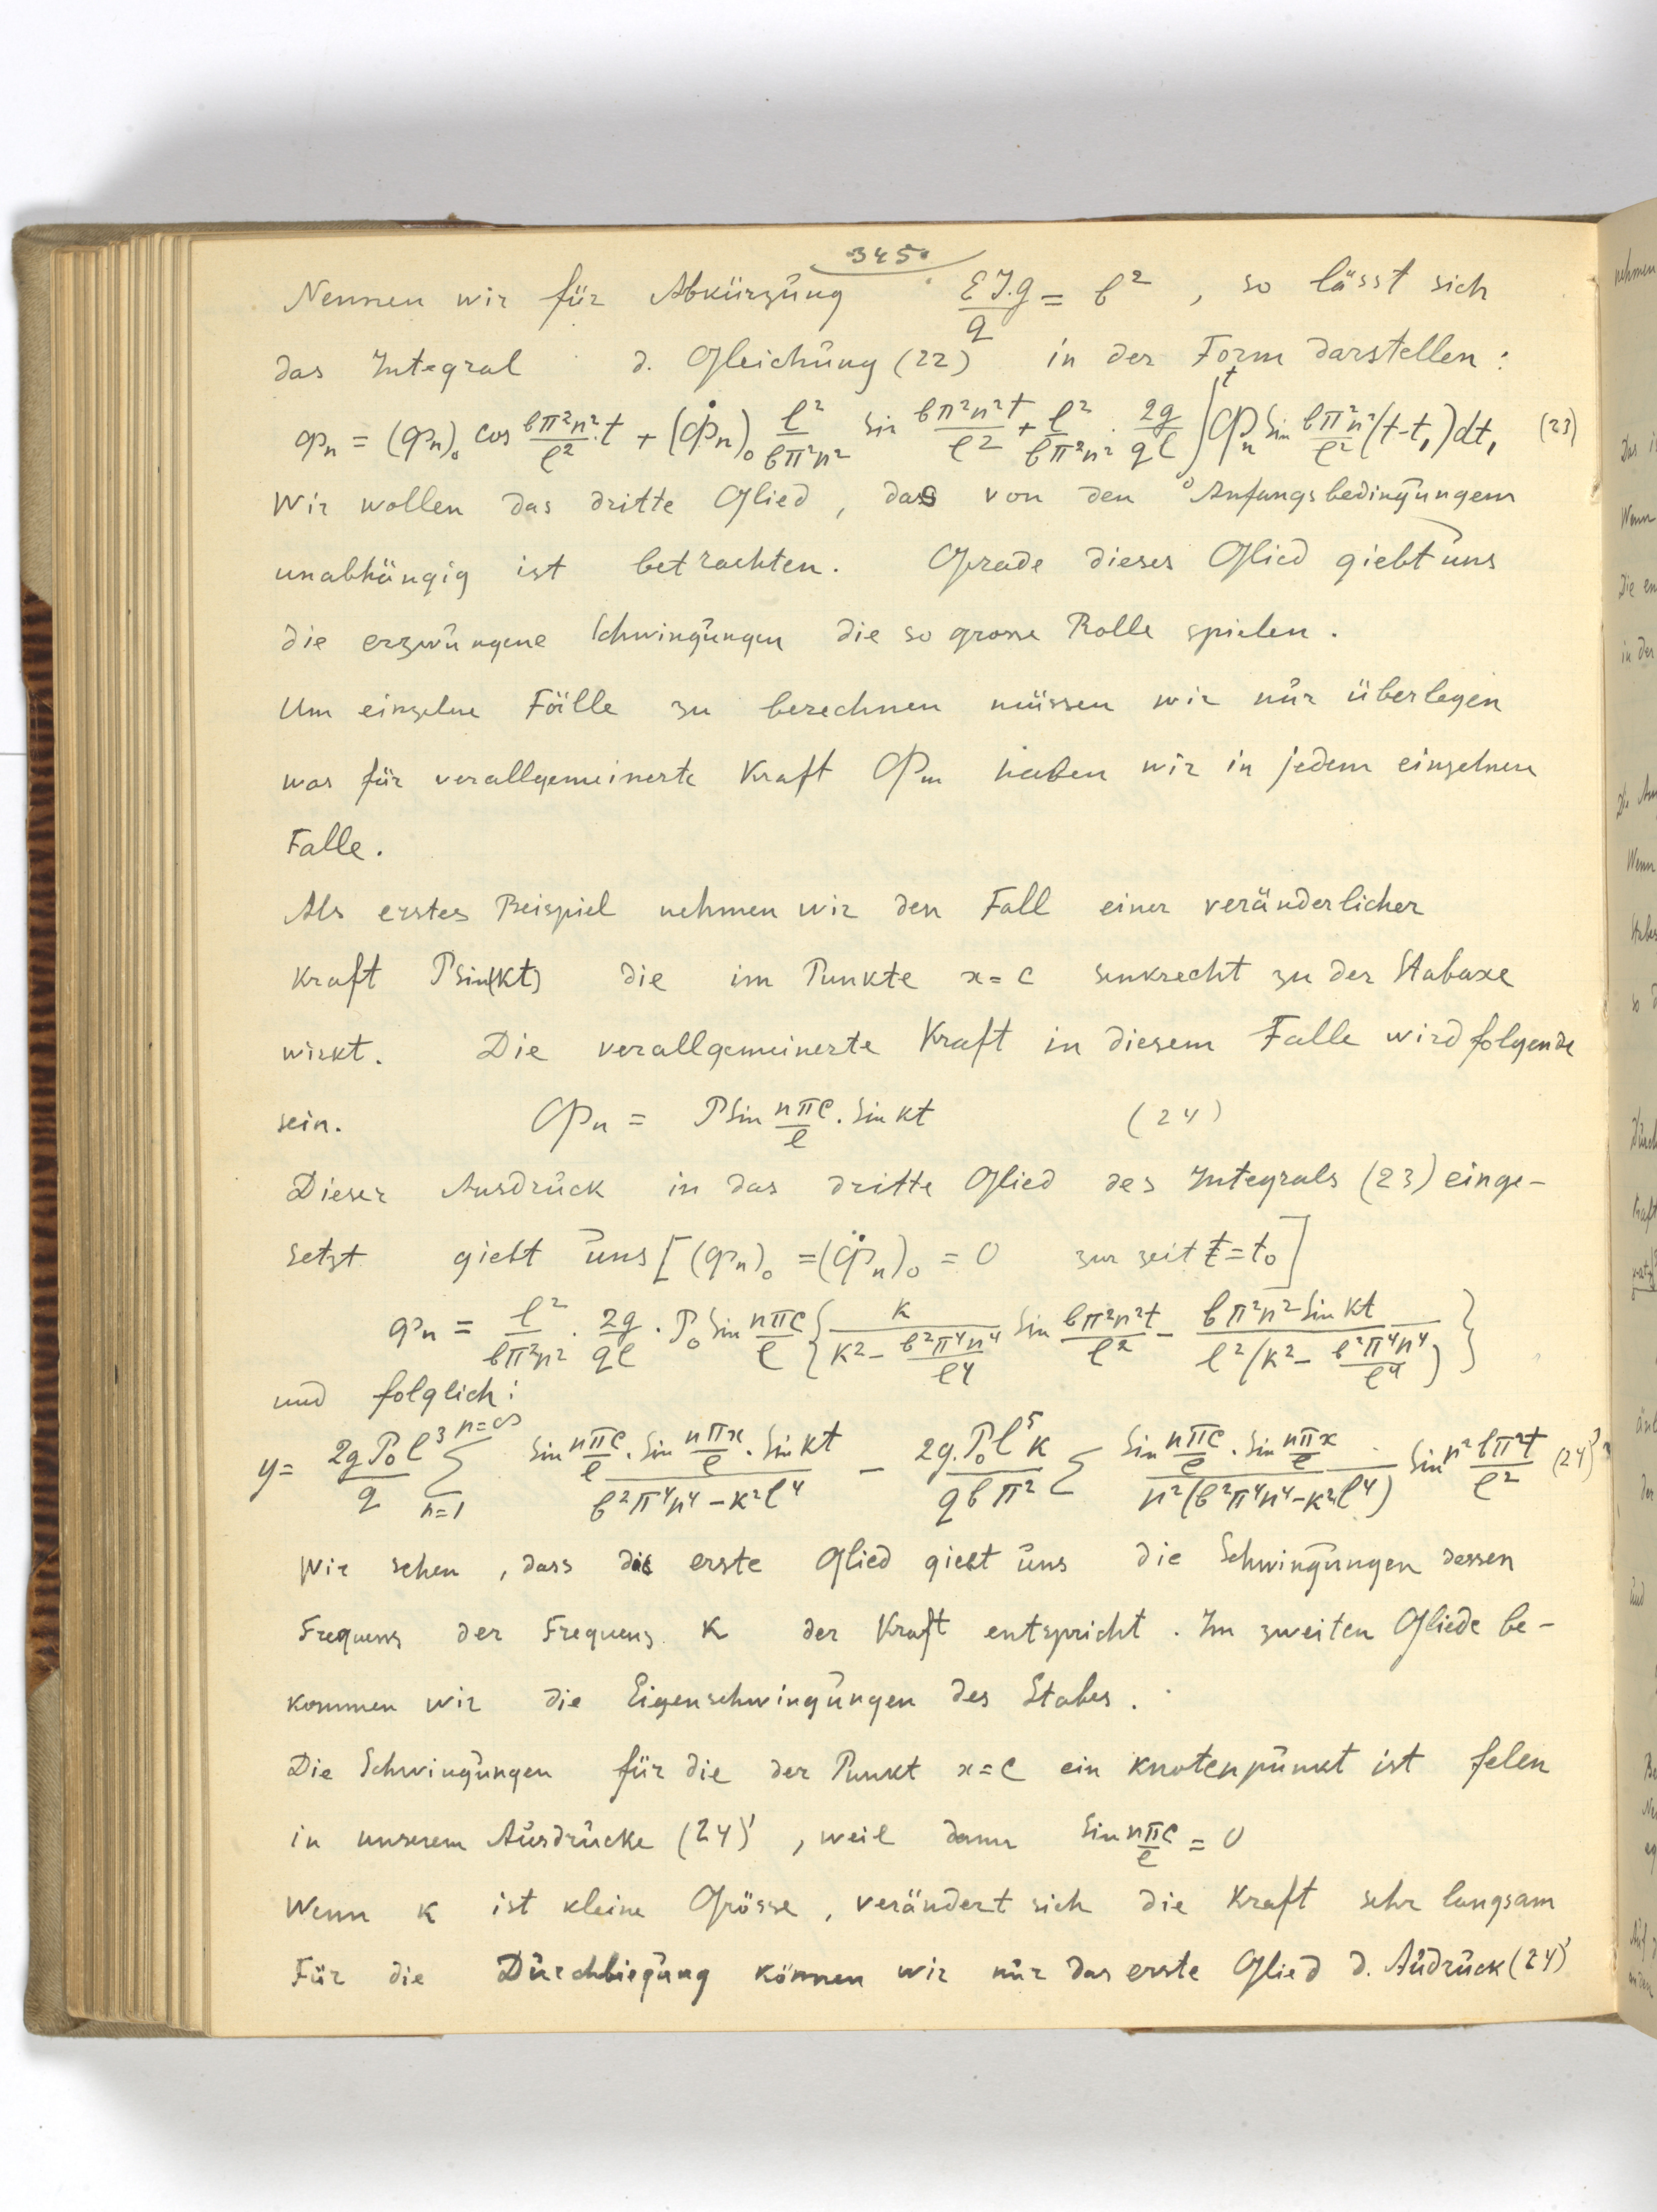 345.
Nennen wir für Abkürzung EJ.g/q = b², so lässt sich
das Integral d. Gleichung (22) in der Form darstellen:
φn = (φn)₀ cos bπ²n²/l² · t + (φ̇n)₀ l²/bπ²n² Sin bπ²n²t/l² + l²/bπ²n² · 2g/ql ∫₀ᵗ Φn Sin bπ²n²/l² (t-t₁)dt₁ (23)
Wir wollen das dritte Glied, das von den Anfangsbedingungen
unabhängig ist betrachten. Grade dieses Glied giebt uns
die erzwungene Schwingungen die so grosse Rolle spielen.
Um einzelne Fälle zu berechnen müssen wir nur überlegen
was für verallgemeinerte Kraft Φm haben wir in jedem einzelnen
Falle.
Als erstes Beispiel nehmen wir den Fall einer veränderlicher
Kraft P Sin(kt) die im Punkte x=c senkrecht zu der Stabaxe
wirkt. Die verallgemeinerte Kraft in diesem Falle wird folgende
sein. Φn = P Sin nπc/l . Sin kt (24)
Dieser Ausdruck in das dritte Glied des Integrals (23) einge-
setzt giebt uns [(φn)₀ = (φ̇n)₀ = 0 zur zeit t=t₀]
φn = l²/bπ²n² · 2g/ql · P₀ Sin nπc/l { k/(k² - b²π⁴n⁴/l⁴) Sin bπ²n²t/l² - bπ²n² Sin kt/(l²(k² - b²π⁴n⁴/l⁴)) }
und folglich:
y = 2gP₀l³/q Σ n=1 n=∞ Sin nπc/l . Sin nπx/l . Sin kt/(b²π⁴n⁴ - k²l⁴) - 2g.P₀l⁵k/qbπ² Σ Sin nπc/l . Sin nπx/l/(n²(b²π⁴n⁴ - k²l⁴)) Sin n² bπ²t/l² (24)'
Wir sehen, dass das erste Glied giebt uns die Schwingungen dessen
Frequenz der Frequenz k der Kraft entspricht. Im zweiten Gliede be-
kommen wir die Eigenschwingungen des Stabes.
Die Schwingungen für die der Punkt x=c ein Knotenpunkt ist felen
in unserem Ausdrucke (24)', weil dann Sin nπc/l = 0
Wenn k ist kleine Grösse, verändert sich die Kraft sehr langsam
Für die Durchbiegung können wir nur das erste Glied d. Audruck (24)'